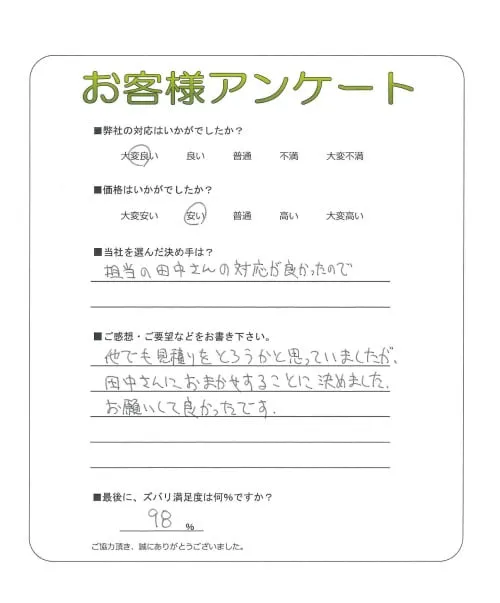 お客様アンケート
■弊社の対応はいかがでしたか？
大変良い 良い 普通 不満 大変不満
■価格はいかがでしたか？
大変安い 安い 普通 高い 大変高い
■当社を選んだ決め手は？
担当の田中さんの対応が良かったので
■ご感想・ご要望などをお書き下さい。
他でも見積りをとろうかと思っていましたが、
田中さんにおまかせすることに決めました.
お願いして良かったです.
■最後に、ズバリ満足度は何%ですか？
98 %
ご協力頂き、誠にありがとうございました。